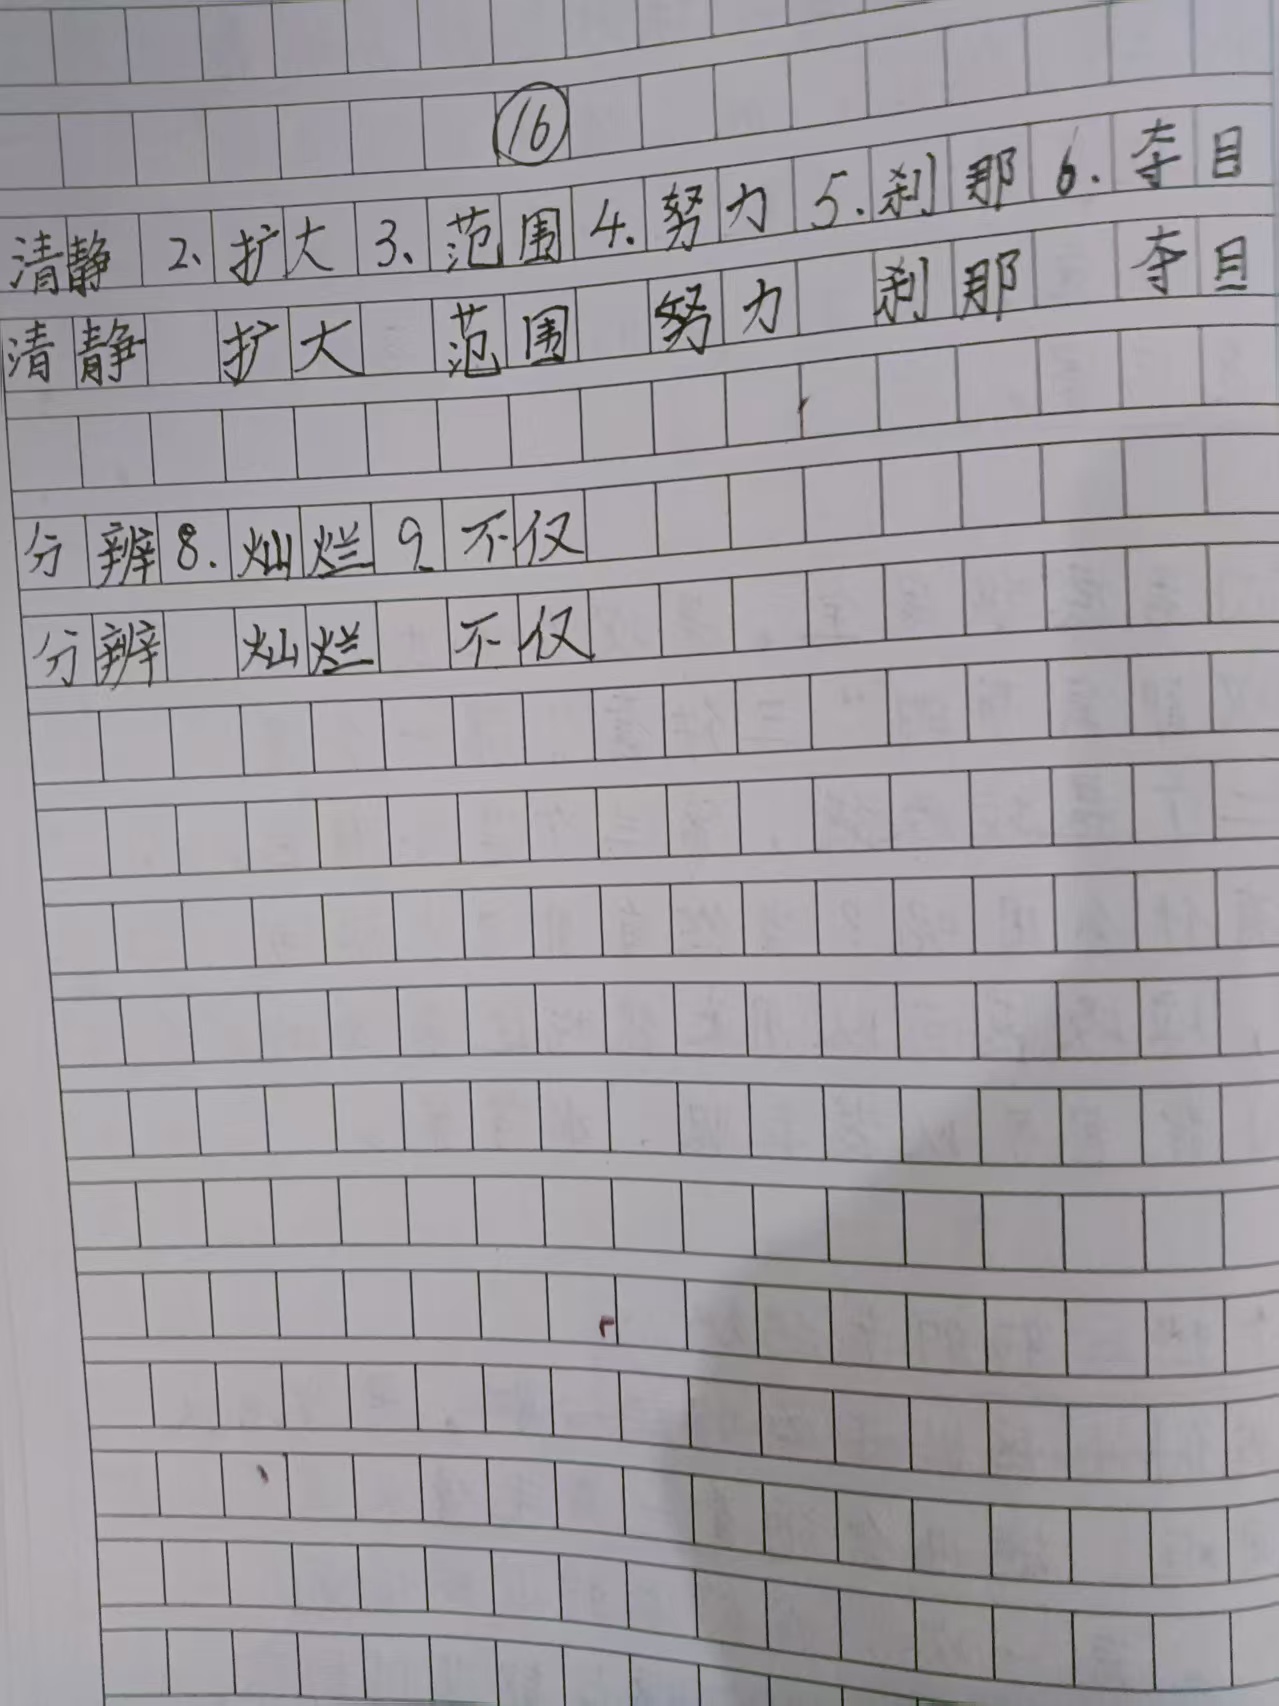 16
清静 2. 扩大 3. 范围 4. 努力 5. 刹那 6. 夺目
清静 扩大 范围 努力 刹那 夺目
分辨 8. 灿烂 9. 不仅
分辨 灿烂 不仅